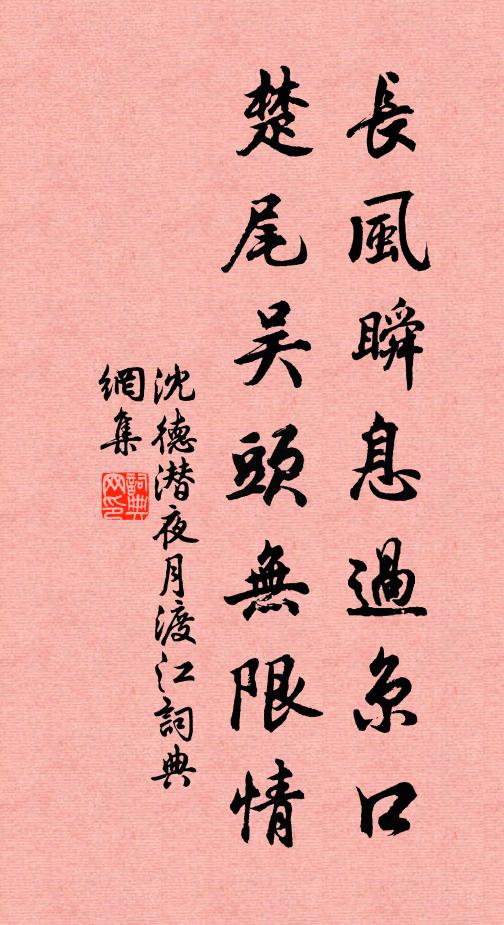 長風瞬息過京口
楚尾吴頭無限情
沈德潜夜月渡江詞典
網集
詞典网印